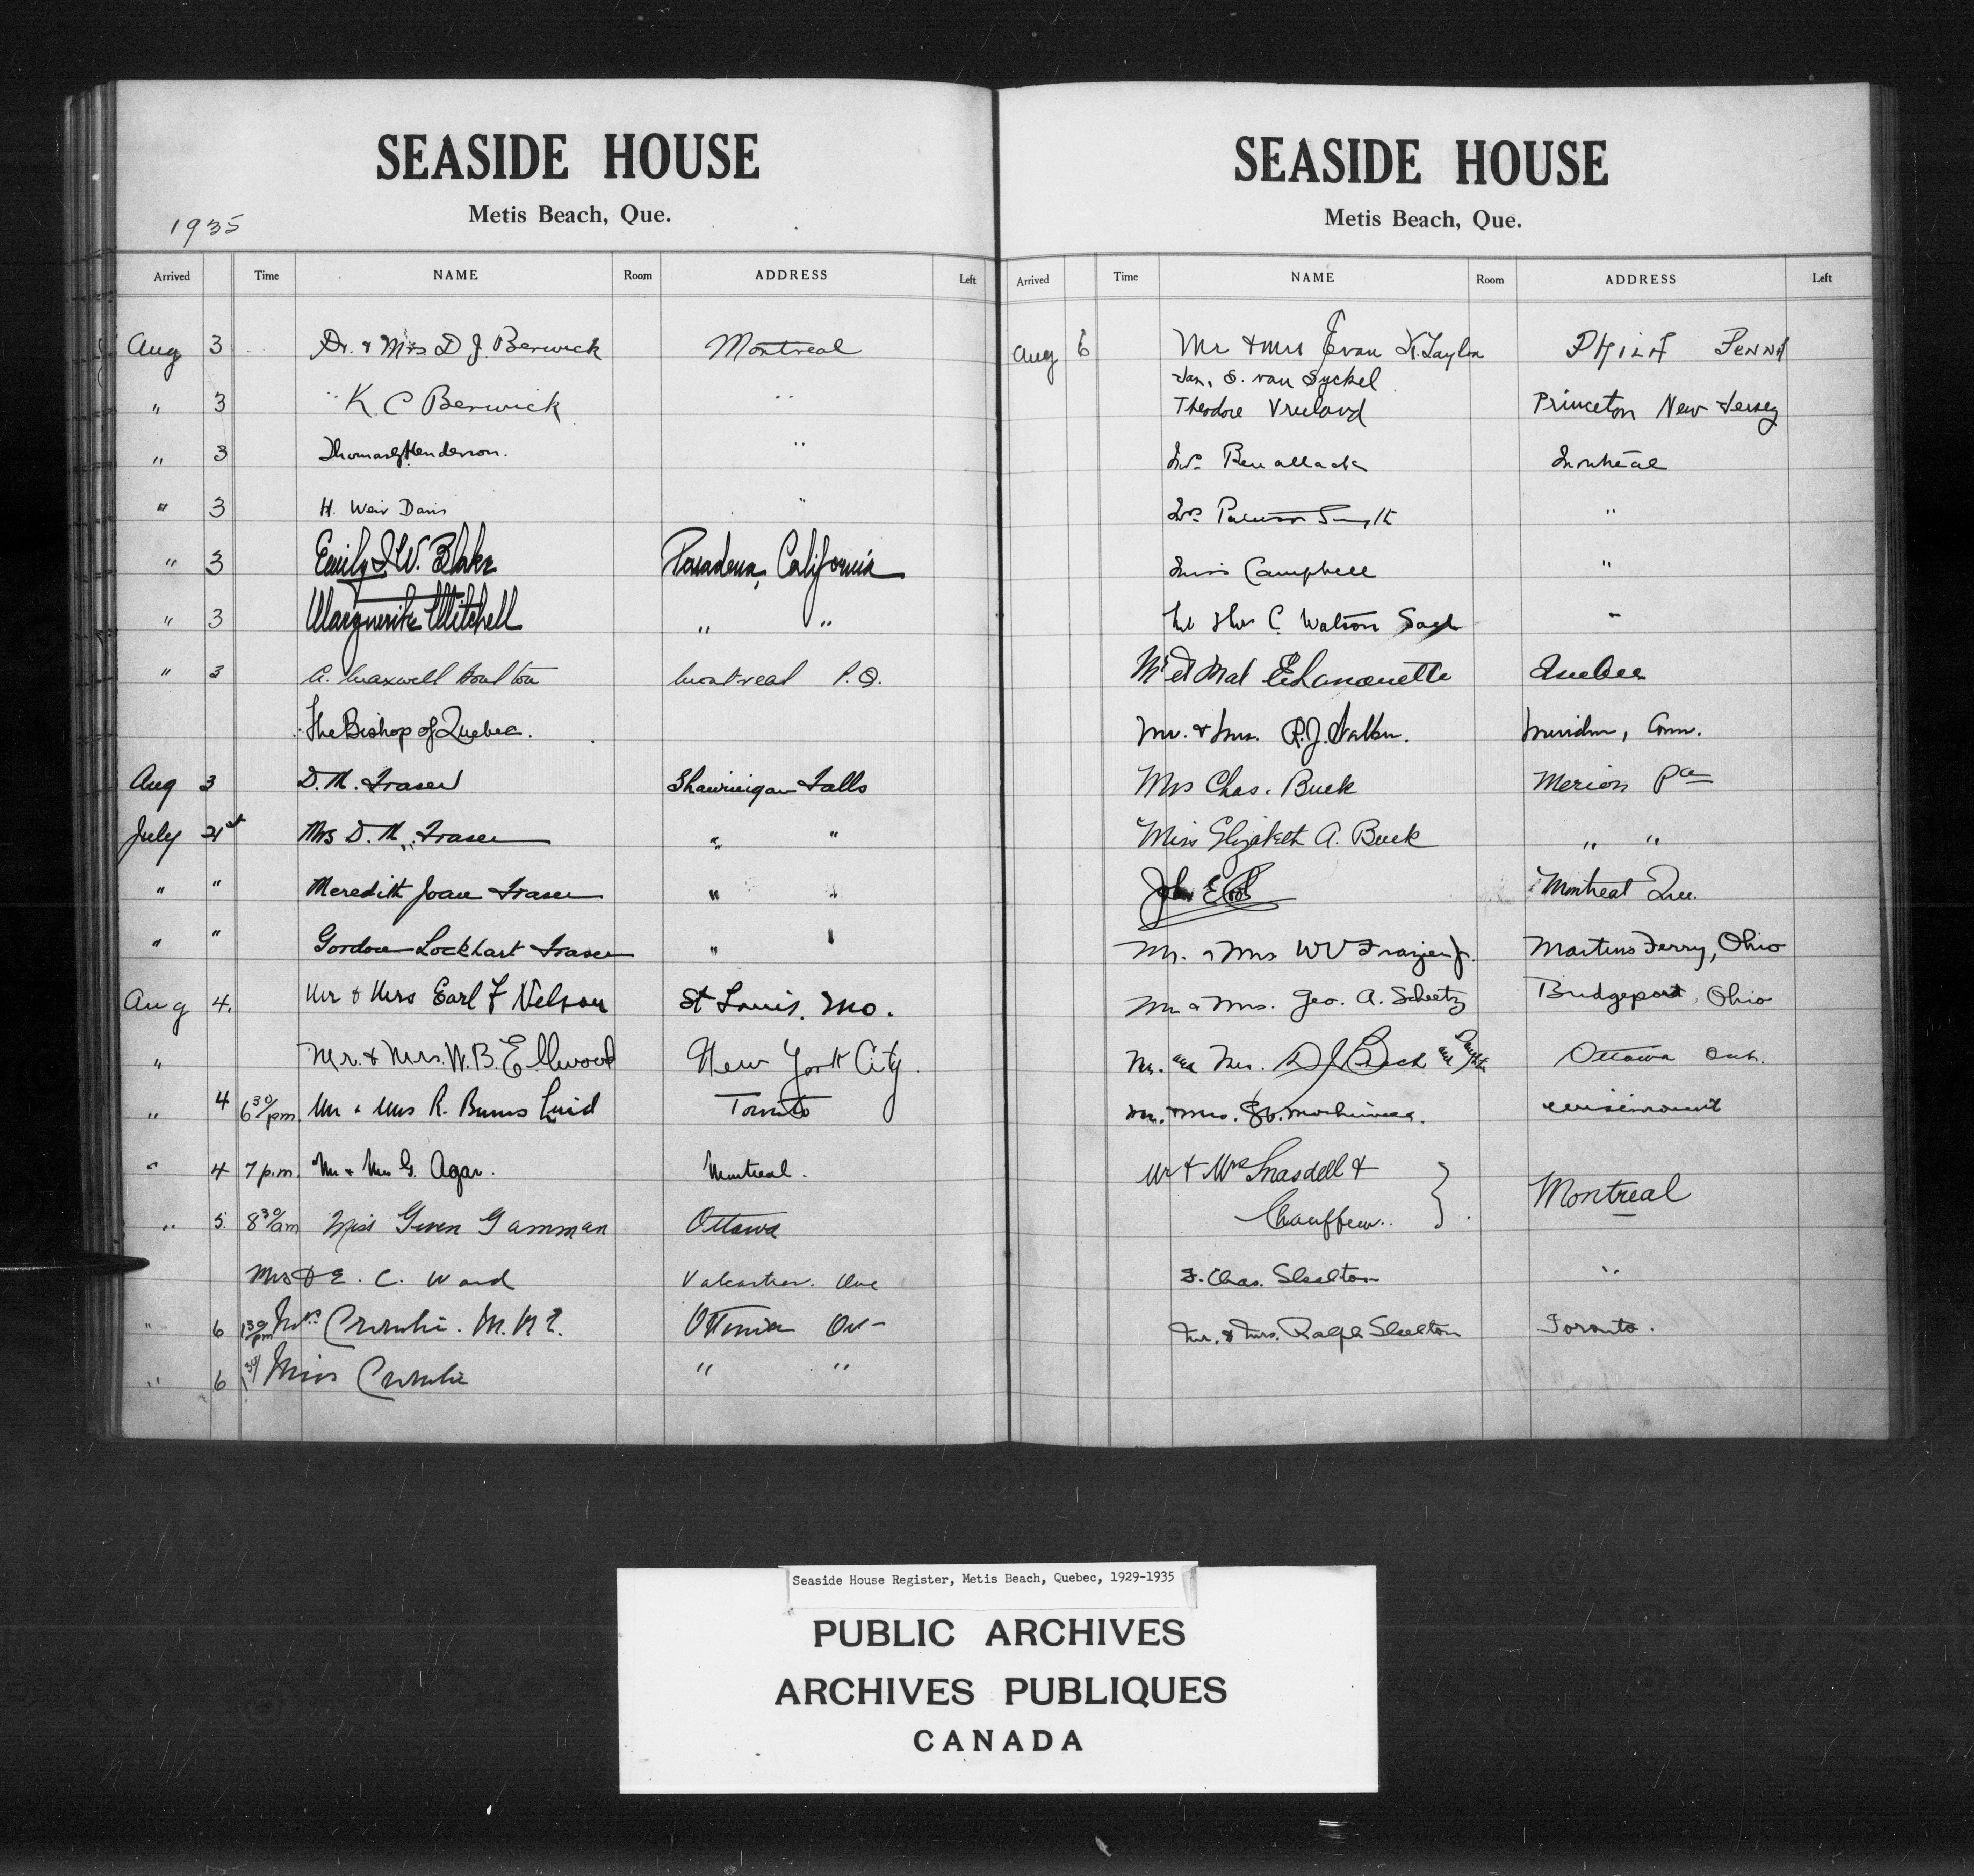 SEASIDE HOUSE
Metis Beach, Que.
1935
Arrived Time NAME Room ADDRESS Left
Aug 3 Dr. & Mrs. D J. Berwick Montreal
" 3 K C Berwick " "
" 3 Thomas Henderson. "
" 3 H. Weir Davis "
" 3 Emily J. W. Blake Pasadena, California
" 3 Marguerite Mitchell " "
" 3 A. Maxwell Boulton Montreal P.Q.
The Bishop of Quebec.
Aug 3 D. M. Fraser Shawinigan Falls
July 21st Mrs D. M. Fraser " "
" " Meredith Joan Fraser " "
" " Gordon Lockhart Fraser " "
Aug 4. Mr & Mrs Earl F Nelson St Louis, Mo.
" Mr. & Mrs. W. B. Ellwood New York City.
" 4 6 30/pm. Mr & Mrs R. Burns Toronto
" 4 7 p.m. Mr & Mrs G. Agar. Montreal.
" 5. 8 30/am Miss Gwen Gamman Ottawa
Mrs E. C. Ward Valcartier. Que
" 6 1 30/pm Mrs Crombie. Ottawa Ont
" 6 1 30/ Miss Crombie " "
SEASIDE HOUSE
Metis Beach, Que.
Arrived Time NAME Room ADDRESS Left
Aug 6 Mr & Mrs Evan K. Taylor PHILA PENNA
Jan. S. van Syckel
Theodore Vreeland Princeton New Jersey
Mrs Benallack Montreal
Mrs Smyth "
Miss Campbell "
C. Watson "
Mr et Mad E Lamontette Quebec
Mr. & Mrs. R. J. Meriden, Conn.
Mrs Chas. Buck Merion Pa
Miss Elizabeth A. Buck " "
John Montreal Que.
Mr. & Mrs W V Frazier Jr. Martins Ferry, Ohio
Mr & Mrs. Geo. A. Scheetz Bridgeport, Ohio
Mr. and Mrs. and Daughter Ottawa Ont.
Mr. & Mrs.
Mr & Mrs Snasdell &
Chauffeur. } Montreal
F. Chas. Skelton "
Mr. & Mrs. Ralph Skelton Toronto.
Seaside House Register, Metis Beach, Quebec, 1929-1935
PUBLIC ARCHIVES
ARCHIVES PUBLIQUES
CANADA